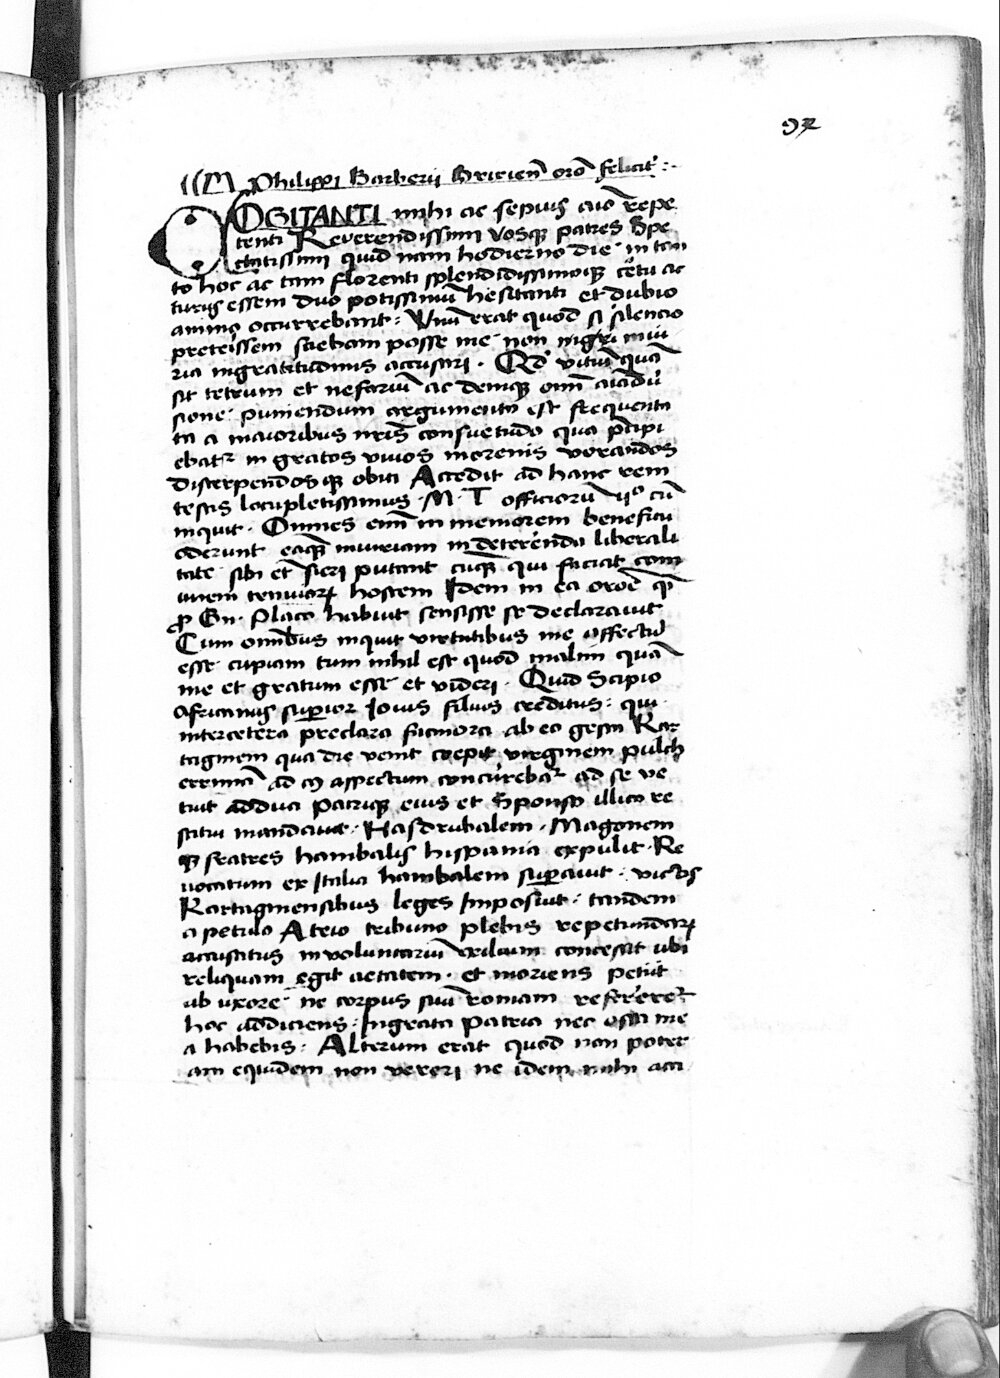 92
M Philippi Barberii Siricien̄ orō felicit̄ :·
COGITANTI mihi ac sepius aīo repe
tenti Reverendissimi vosq̨ patres Spe
ctatissimi quid nam hodierno die in tan
to hoc ac tam florenti splendidissimoq̨ cetu ac
turus essem duo potissimū hesitanti et dubio
animo occurrebant : Unū erat quod si silencio
preteissem sciebam posse me non iniuria
ria ingratitudinis accusari · Qd̄ vitiū quā
sit tetrum et nefariū ac deniq̨ omī
sione puniendum argumento est frequenta
ta a maioribus nr̄is consuetudo qua p̄cipi
ebatr ingratos vivos morenis vorandos
discerpendosq̨ obici Accedit ad hanc rem
testis locupletissimus · M · T officiorū ijo cū
inquit · Omnes enī in memorem beneficii
oderunt eaq̨ iniuriam in deterenda liberali
tate sibi et̄ fieri putant eūq̨ qui faciat com
unem tenuiorꝝ hostem Idem in ea orōe q̄
ꝓ Gn · Placo habuit sensisse se declaravit
Cum omībus inquit virtutibus me affectū
esse cupiam tum nihil est quod malim quā
me et gratum esse et videri · Quid Scipio
Africanus superior Iovis filius creditus : qui
intercetera preclara facinora ab eo gesta Kar
taginem qua die venit coepit virginem pulch
errimā ad cꝰ aspectum concurrebar ad se ve
tuit adduci Patriq̨ eius et Sponso illico re
stitui mandavit · Hasdrubalem · Magonem
q̨ fratres hanibalis hispania expulit · Re
vocatum ex Italia hanibalem superavit · victis
Kartaginensibus leges Imposuit · tandem
a petulo Ateio tribuno plebis repetundarꝝ
accusatus in voluntariū exilium concessit ubi
reliquam egit aetatem · et moriens petiit
ab uxore ne corpus suū romam referrer
hoc addiciens : Ingrata Patria nec ossa me
a habebis : Alterum erat quod non poter
am equidem non vereri ne idem mihi acci